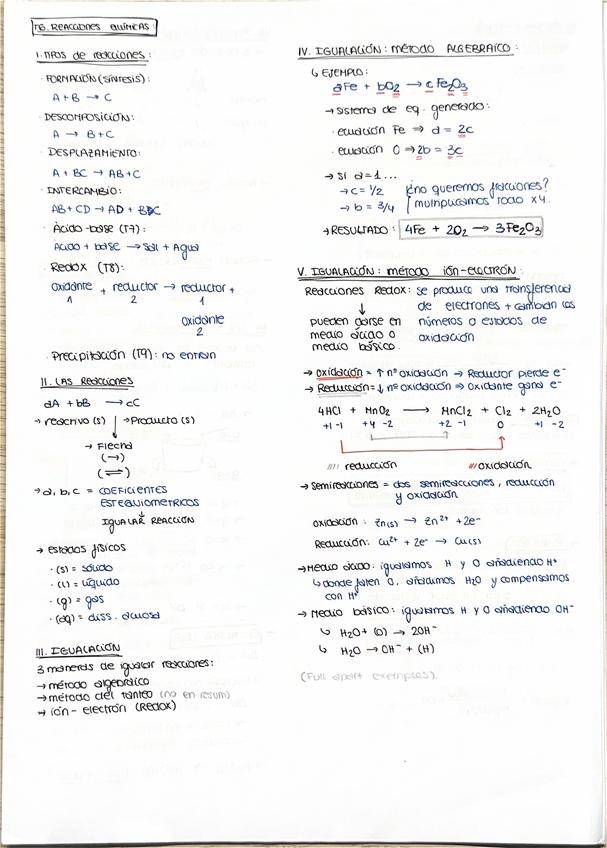 T6. REACCIONES QUÍMICAS:
I. TIPOS de reacciones:
· FORMACIÓN (SÍNTESIS):
A + B → C
· DESCOMPOSICIÓN:
A → B + C
· DESPLAZAMIENTO:
A + BC → AB + C
· INTERCAMBIO:
AB + CD → AD + BC
· Ácido-base (T7):
Ácido + base → Sal + Agua
· Redox (T8):
oxidante + reductor → reductor +
1 2 1
oxidante
2
· Precipitación (T9): no entran
II. LAS Reacciones
aA + bB → cC
→ reactivo (s) → Producto (s)
→ Flecha
(→)
(⇌)
→ a, b, c = COEFICIENTES
ESTEQUIOMETRICOS
↓
IGUALAR REACCIÓN
→ estados físicos
· (s) = sólido
· (l) = líquido
· (g) = gas
· (aq) = diss. acuosa
III. IGUALACIÓN
3 maneras de igualar reacciones:
→ método algebraico
→ método del tanteo (no en resum)
→ ión - electrón (Redox)
IV. IGUALACIÓN: MÉTODO ALGEBRAICO:
↳ EJEMPLO:
aFe + bO2 → cFe2O3
→ sistema de eq. generado:
· ecuación Fe ⇒ a = 2c
· ecuación O ⇒ 2b = 3c
→ Si a = 1 ...
→ c = 1/2 ¿no queremos fracciones?
→ b = 3/4 multiplicamos todo x4.
→ RESULTADO: 4Fe + 2O2 → 3Fe2O3
V. IGUALACIÓN: método ión-electrón:
Reacciones Redox: se produce una transferencia
↓ de electrones + cambian los
pueden darse en números o estados de
medio ácido o oxidación
medio básico.
→ oxidación = ↑ nº oxidación ⇒ Reductor pierde e⁻
→ Reducción = ↓ nº oxidación ⇒ oxidante gana e⁻
4HCl + MnO2 → MnCl2 + Cl2 + 2H2O
+1 -1 +4 -2 +2 -1 0 +1 -2
//// reducción /// oxidación
→ semireacciones = dos semireacciones, reducción
y oxidación
oxidación: Zn(s) → Zn²⁺ + 2e⁻
Reducción: Cu²⁺ + 2e⁻ → Cu(s)
→ Medio ácido: igualamos H y O añadiendo H⁺
↳ donde falten O, añadimos H2O y compensamos
con H⁺
→ Medio básico: igualamos H y O añadiendo OH⁻
↳ H2O + (O) → 2OH⁻
↳ H2O → OH⁻ + (H)
(Full apart exemples)